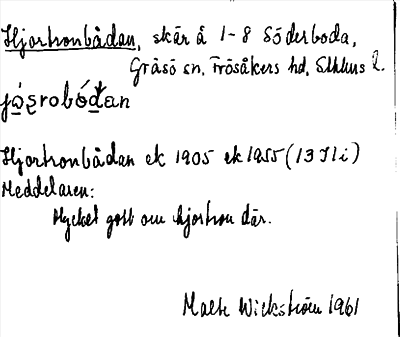 Hjortronbådan, skär å 1-8 Söderboda,
Gräsö sn, Frösåkers hd, Sthlms l.
jo̲ʂrobó̲đan
Hjortronbådan ek 1905 ek 1955 (13 I1 i)
Meddelaren:
Mycket gott om hjortron där.
Malte Wickström 1961